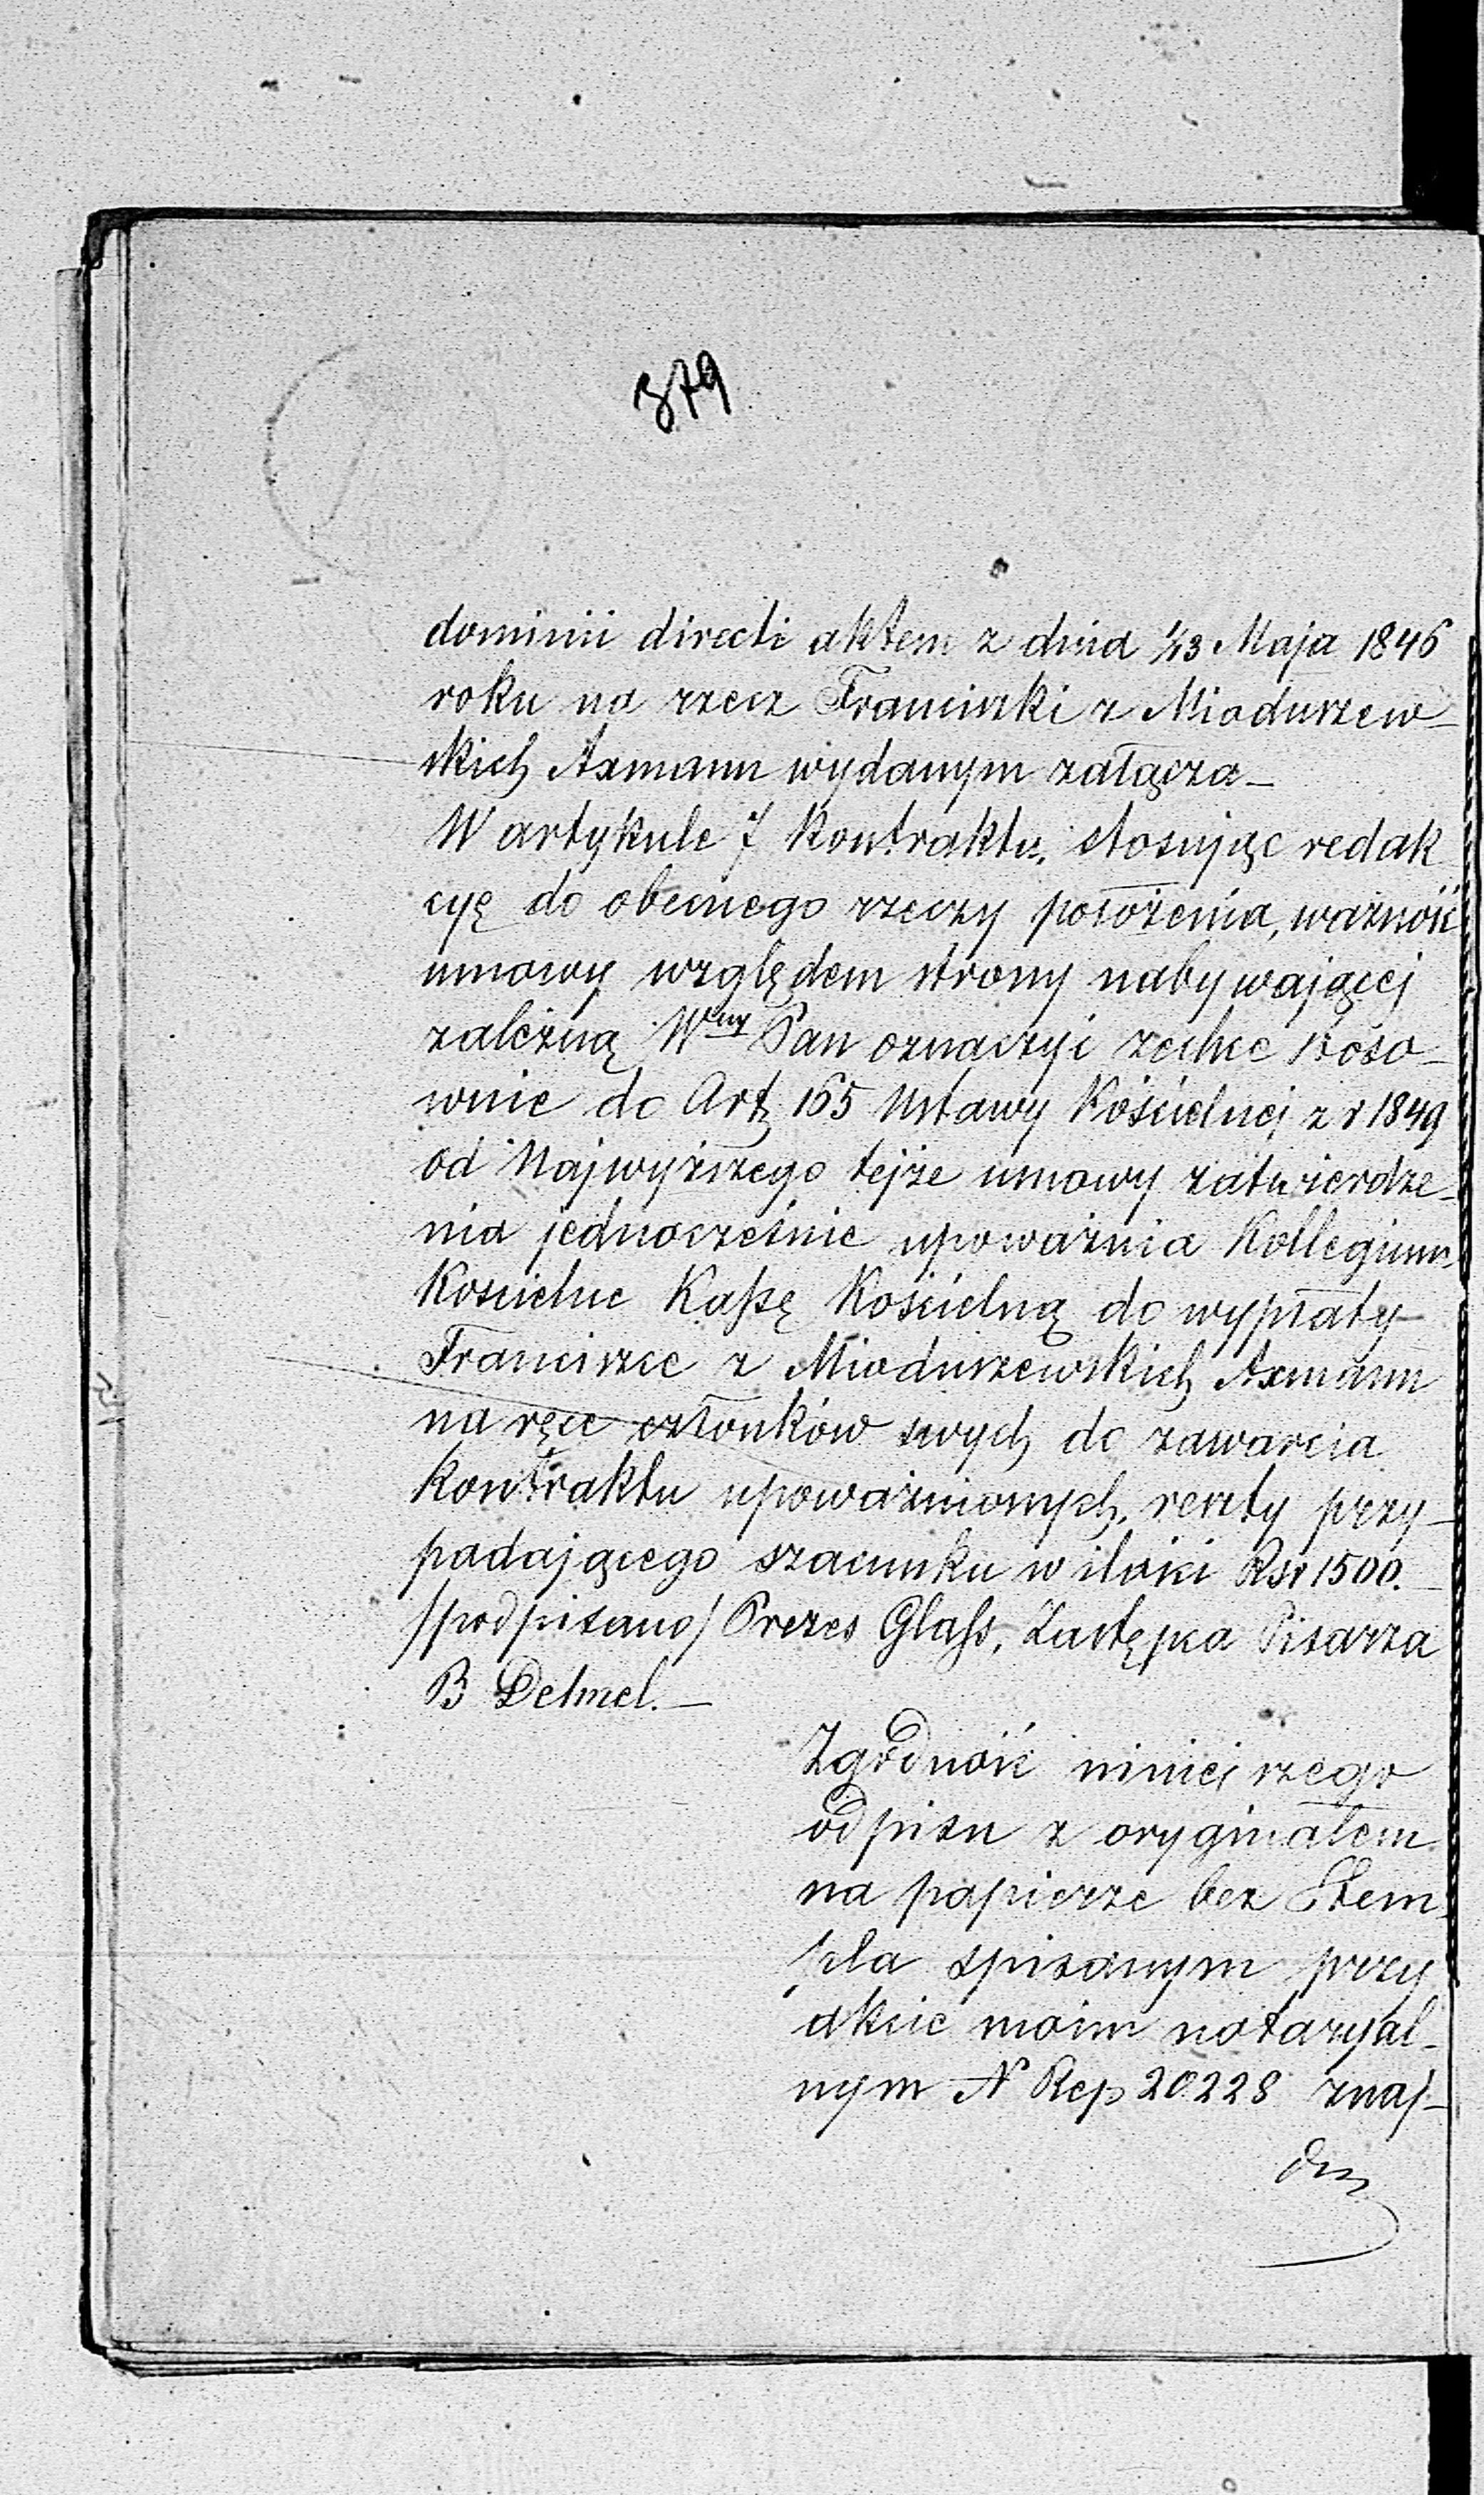 379
dominii directi aktem z dnia 1/13 Maja 1846
roku na rzecz Franciszki z Mioduszew-
skich Axmann wydanym załącza-
W artykule 7 Kontraktu, stosując redak
cyę do obecnego rzeczy położenia, ważność
umowy względem strony nabywającej
zależną Wny Pan oznaczyć zechce stoso-
wnie do Art 165 Ustawy Kościelnej z r 1849
od Najwyższego tejże umowy zatwierdze-
nia jednocześnie upoważnia Kollegium
Kościelne Kaßę Kościelną do wypłaty
Franciszce z Mioduszewskich Axmann
na ręce członków swych do zawarcia
Kontraktu upoważnionych, reszty przy-
padającego szacunku w ilości Rsr 1500.-
/podpisano/ Prezes Glaß, Zastępca Pisarza
B Dehnel.-
Zgodność niniejszego
odpisu z oryginałem
na papierze bez Stem-
pla spisanym przy
akcie moim notaryal-
nym N Rep 20228 znaj-